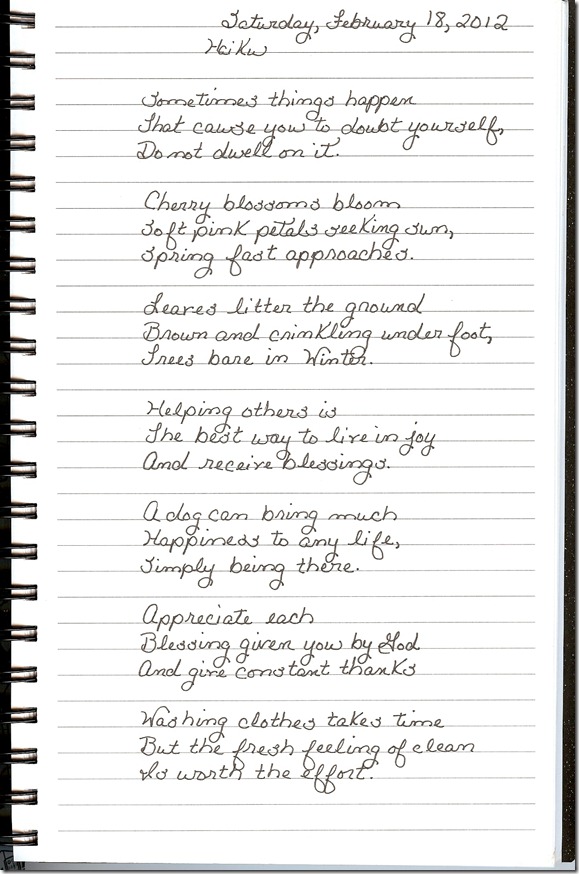 Saturday, February 18, 2012
Haiku
Sometimes things happen
That cause you to doubt yourself,
Do not dwell on it.
Cherry blossoms bloom
Soft pink petals seeking sun,
Spring fast approaches.
Leaves litter the ground
Brown and crinkling under foot,
Trees bare in Winter.
Helping others is
The best way to live in joy
And receive blessings.
A dog can bring much
Happiness to any life,
Simply being there.
Appreciate each
Blessing given you by God
And give constant thanks
Washing clothes takes time
But the fresh feeling of clean
Is worth the effort.